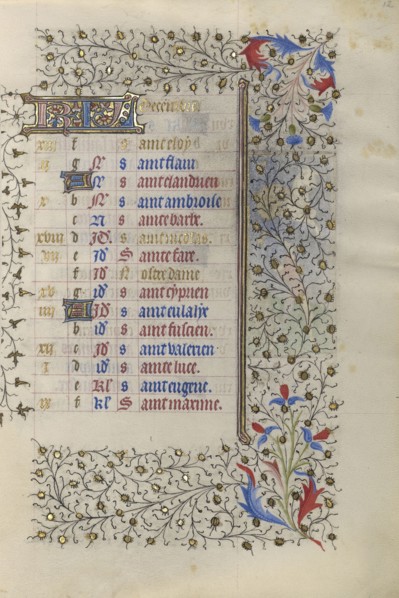 12
KL Decembre
xiii f s aint eloy
ii g N s aint flavi
A N s aint landrien
x b N s aint ambroise
c N s ainte barbe
xviii d Id s aint nicolas.
vii e Id S ainte fare.
f Id N ostre dame
xv g id s aint cyprien
iiii A Id s ainte ulalye
b id s aint fuscien.
xii c Id s aint valerien
i d id s ainte luce.
e Kl s aint eugene.
ix f kl S aint maxime.